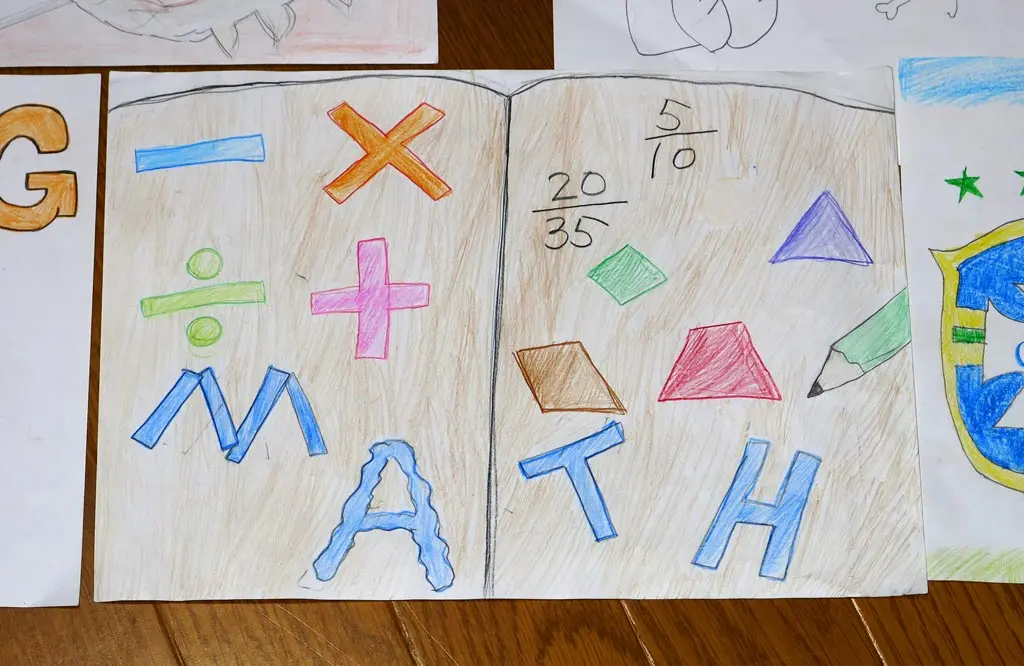 G
− ×
÷ +
5
10
20
35
MATH